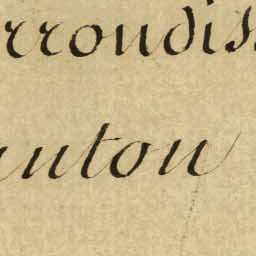 rrondis
anton